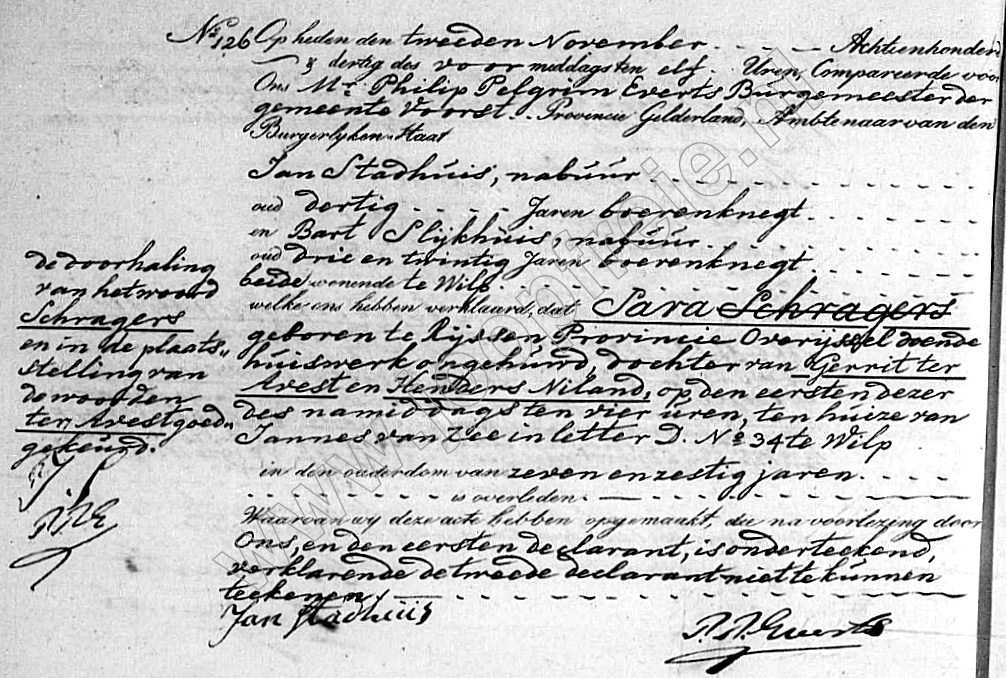 No 126 Op heden den tweeden November Achtienhonderd
& dertig des voormiddags ten elf Uren, Compareerde voor
Ons Mr. Philip Pelgrim Everts Burgemeester der
gemeente Voorst. Provincie Gelderland, Ambtenaar van den
Burgerlyken Staat
Jan Stadhuis, nabuur
oud dertig Jaren boerenknegt
en Bart Slijkhuis, nabuur
oud drie en twintig Jaren boerenknegt
beide wonende te Wilp
welke ons hebben verklaard, dat Sara Schragers
geboren te Ryssen Provincie Overijssel doende
huiswerk ongehuwd, dochter van Gerrit ter
Avest en Henders Niland, op den eersten dezer
des namiddags ten vier uren, ten huize van
Jannes van Zee in letter D. No 34 te Wilp
in den ouderdom van zeven en zestig jaren
is overleden.
Waarvan wy deze acte hebben opgemaakt, die na voorlezing door
Ons, en den eersten declarant, is onderteekend,
verklarende de tweede declarant niet te kunnen
teekenen.
Jan Stadhuis
P.P. Everts
de doorhaling
van het woord
Schragers
en in de plaats
stelling van
de woorden
ter Avest goed
gekeurd.
JS
PPE